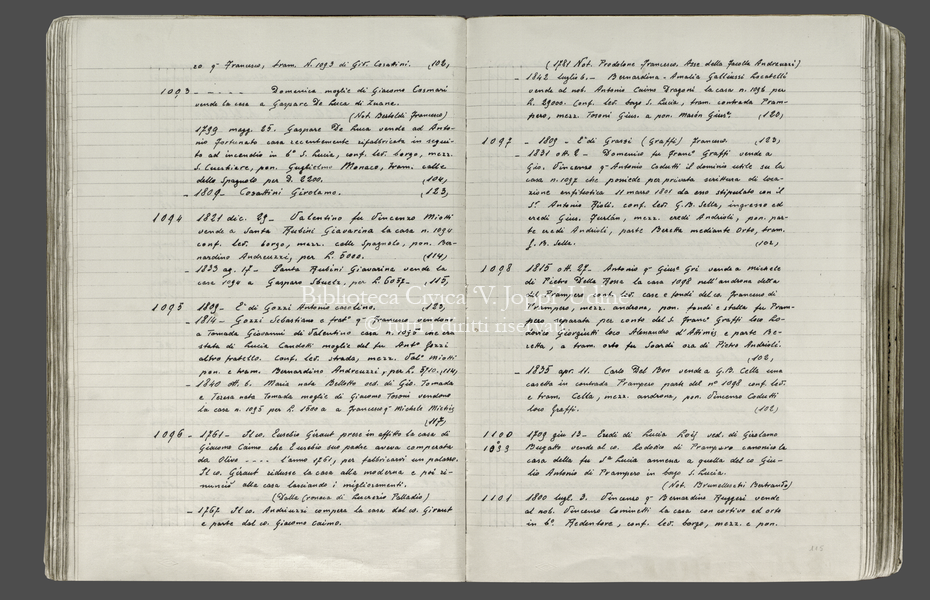 co. q.m Francesco, tram. N. 1093 di Giv. Cosattini. (102)
1093 - - - - - Domenica moglie di Giacomo Cosmari
vende la casa a Gaspare De Luca di Zuane.
(Not. Bertoldi Francesco)
1799. magg. 25. Gaspare De Luca vende ad Anto-
nio Fortunato casa recentemente rifabbricata in segui-
to ad incendio in b.o S. Lucia, conf. lev. borgo, mezz.
S. Cucchiare, pon. Guglielmo Monaco, tram. calle
dello Spagnolo per D. 2200. (104)
- 1809 - Cosattini Girolamo. (123)
1094 1821 dic. 29 - Valentino fu Vincenzo Miotti
vende a Santa Rubini Giavarina la casa n. 1094
conf. lev. borgo, mezz. calle Spagnolo, pon. Ber-
nardino Andreuzzi, per L. 5000. (114)
- 1833 ag. 17 - Santa Rubini Giavarina vende la
casa 1090 a Gaspare Sbuelz, per L. 6057. (115)
1095 1809 - E.di Gozzi Antonio casolino. (123)
- 1814 - Gozzi Sebastiano e frat.o q.m Francesco vendono
a Tomada Giovanni di Valentino casa n. 1095 che era
stata di Lucia Candotti moglie del fu Ant.o Gozzi
altro fratello. Conf. lev. strada, mezz. Val.o Miotti
pon. e tram. Bernardino Andreuzzi, per L. 5710. (114)
- 1840 ott. 6. Maria nata Bellotto ved. di Gio. Tomada
e Teresa nata Tomada moglie di Giacomo Tosoni vendono
la casa n. 1095 per L. 1600 a Francesco q.m Michele Miotti
(117)
1096 - 1761 - Il co. Eusebio Giraut prese in affitto la casa di
Giacomo Caimo che Eusebio suo padre aveva comperata
da Olivo - - - - l'anno 1761, per fabbricarvi un palazzo.
Il co. Giraut ridusse la casa alla moderna e poi ri-
nunciò alla casa lasciando i miglioramenti.
(Dalla Cronaca di Lucrezio Palladio)
- 1767 Il co. Andriuzzi compera la casa dal co. Giraut
e parte dal co. Giacomo Caimo.
(1781 Not. Prodolone Francesco. Asse della facoltà Andreuzzi)
- 1842 luglio 6. - Bernardina - Amalia Gallizzi Locatelli
vende al nob. Antonio Caimo Dragoni la casa n. 1096 per
L. 29000. Conf. lev. borgo S. Lucia, tram. contrada Pram-
pero, mezz. Tosoni Gius. a pon. Marón Gius. (120)
1097 - 1809 - E.di Grassi (Graffi) Francesco. (123)
- 1831 ott. 2 - Domenico fu Franc.o Graffi vende a
Gio. Vincenzo q.m Antonio Codutti il dominio utile su la
casa n. 1097 che possiede per privata scrittura di loca-
zione enfiteotica 11 marzo 1801 da esso stipulato con il
S.r Antonio Rioli. conf. lev. G.B. Sella, ingresso ed
eredi Gius. Furlán, mezz. eredi Andrioli, pon. par-
te eredi Andrioli, parte Beretta mediante Orto, tram.
G. B. Sella. (102)
1098 1815 ott. 27 - Antonio q.m Gius.e Gri vende a Michele
di Pietro Della Rossa la casa 1098 nell'androna detta
di Prampero conf. lev. case e fondi del co. Francesco di
Prampero, mezz. androna, pon. fondi e stalla fu Pram-
pero separata per conto del S. Franc.o Graffi loco Lo-
dovico Giorgiutti loco Alessandro d'Attimis e parte Be-
retta, a tram. orto fu Soardi ora di Pietro Andrioli.
(102)
- 1835 apr. 11. Carlo Del Bon vende a G.B. Cella una
casetta in contrada Prampero parte del n.o 1098 conf. lev.
e tram. Cella, mezz. androna, pon. Vincenzo Codutti
loco Graffi. (102)
1100 1709 giu 13 - Eredi di Lucia ved. di Girolamo
1033 Bugatto vende al co. Lodovico di Prampero canonico la
casa della fu S.a Lucia annessa a quella del co Giu-
lio Antonio di Prampero in borgo S. Lucia.
(Not. Brunelleschi Bertrando)
1101 1800 lugl. 3. Vincenzo q.m Bernardino Ruggeri vende
al nob. Vincenzo Cominelli la casa con cortivo ed orto
in b.o Redentore, conf. lev. borgo, mezz. e pon.
Biblioteca Civica 'V. Joppi' Udine
© tutti i diritti riservati